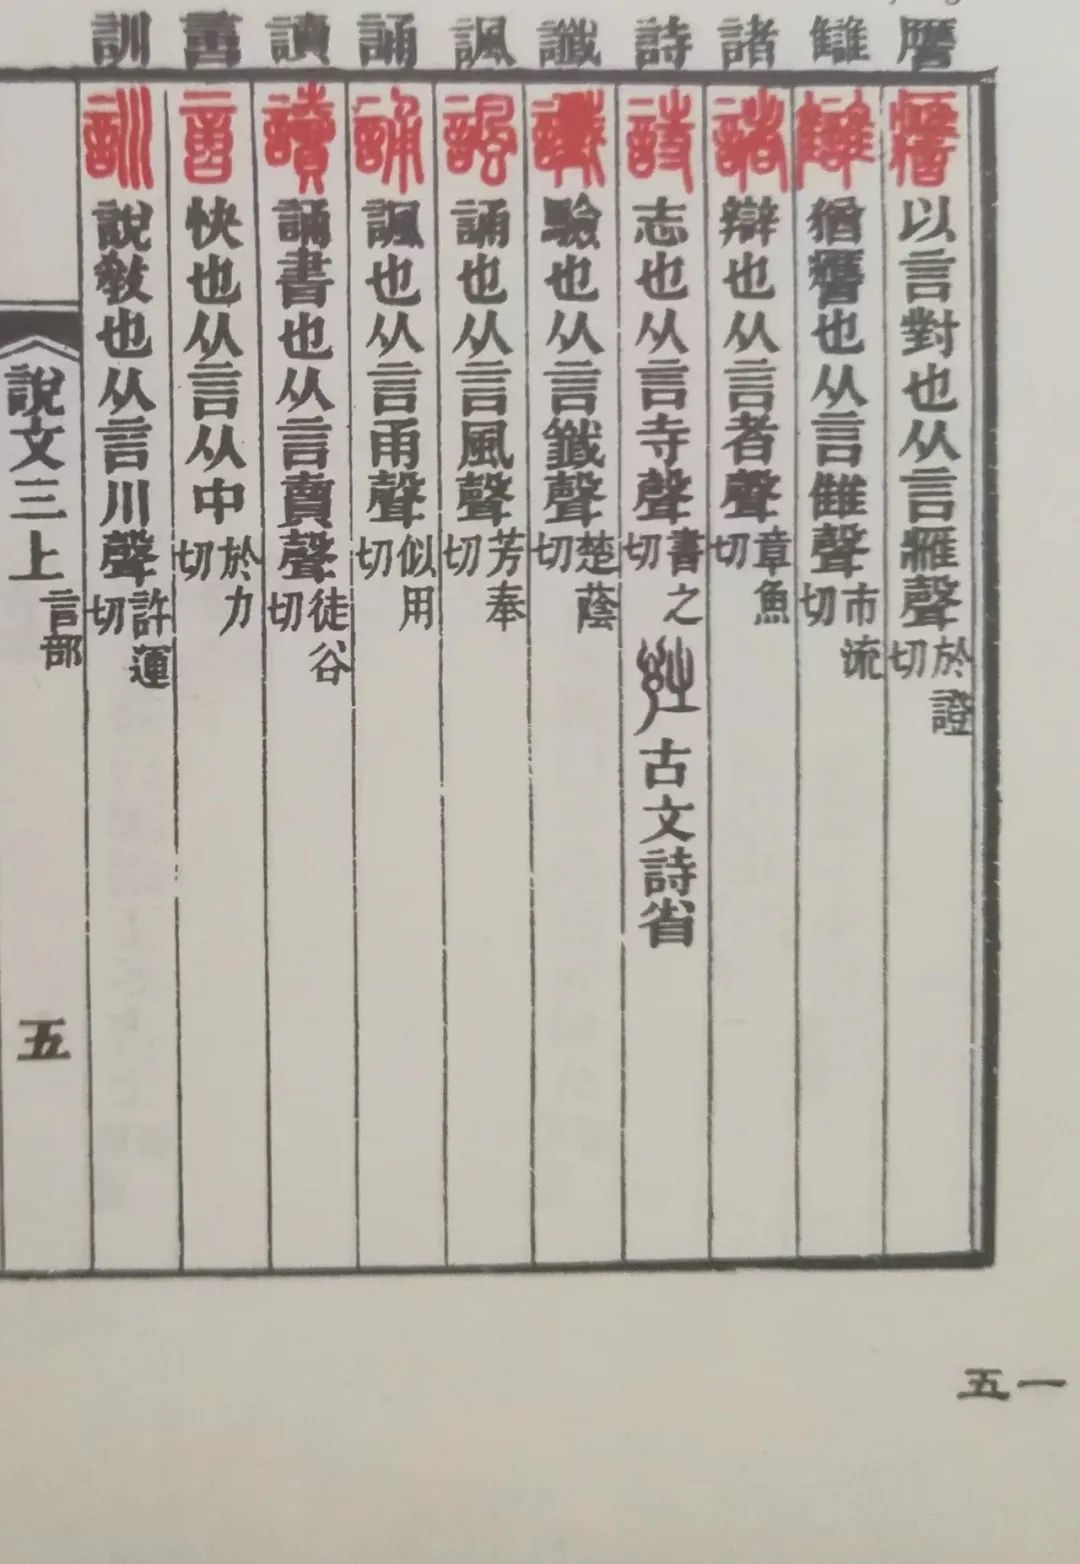 譍 讎 諸 詩 讖 諷 誦 讀 訓
譍 以言對也从言雁聲 於證切
讎 猶譍也从言雔聲 市流切
諸 辯也从言者聲 章魚切
詩 志也从言寺聲 書之切 古文詩省
讖 驗也从言韱聲 楚蔭切
諷 誦也从言風聲 芳奉切
誦 諷也从言甬聲 似用切
讀 誦書也从言賣聲 徒谷切
快也从言从中 於力切
訓 說敎也从言川聲 許運切
說文三上 言部 五
一五